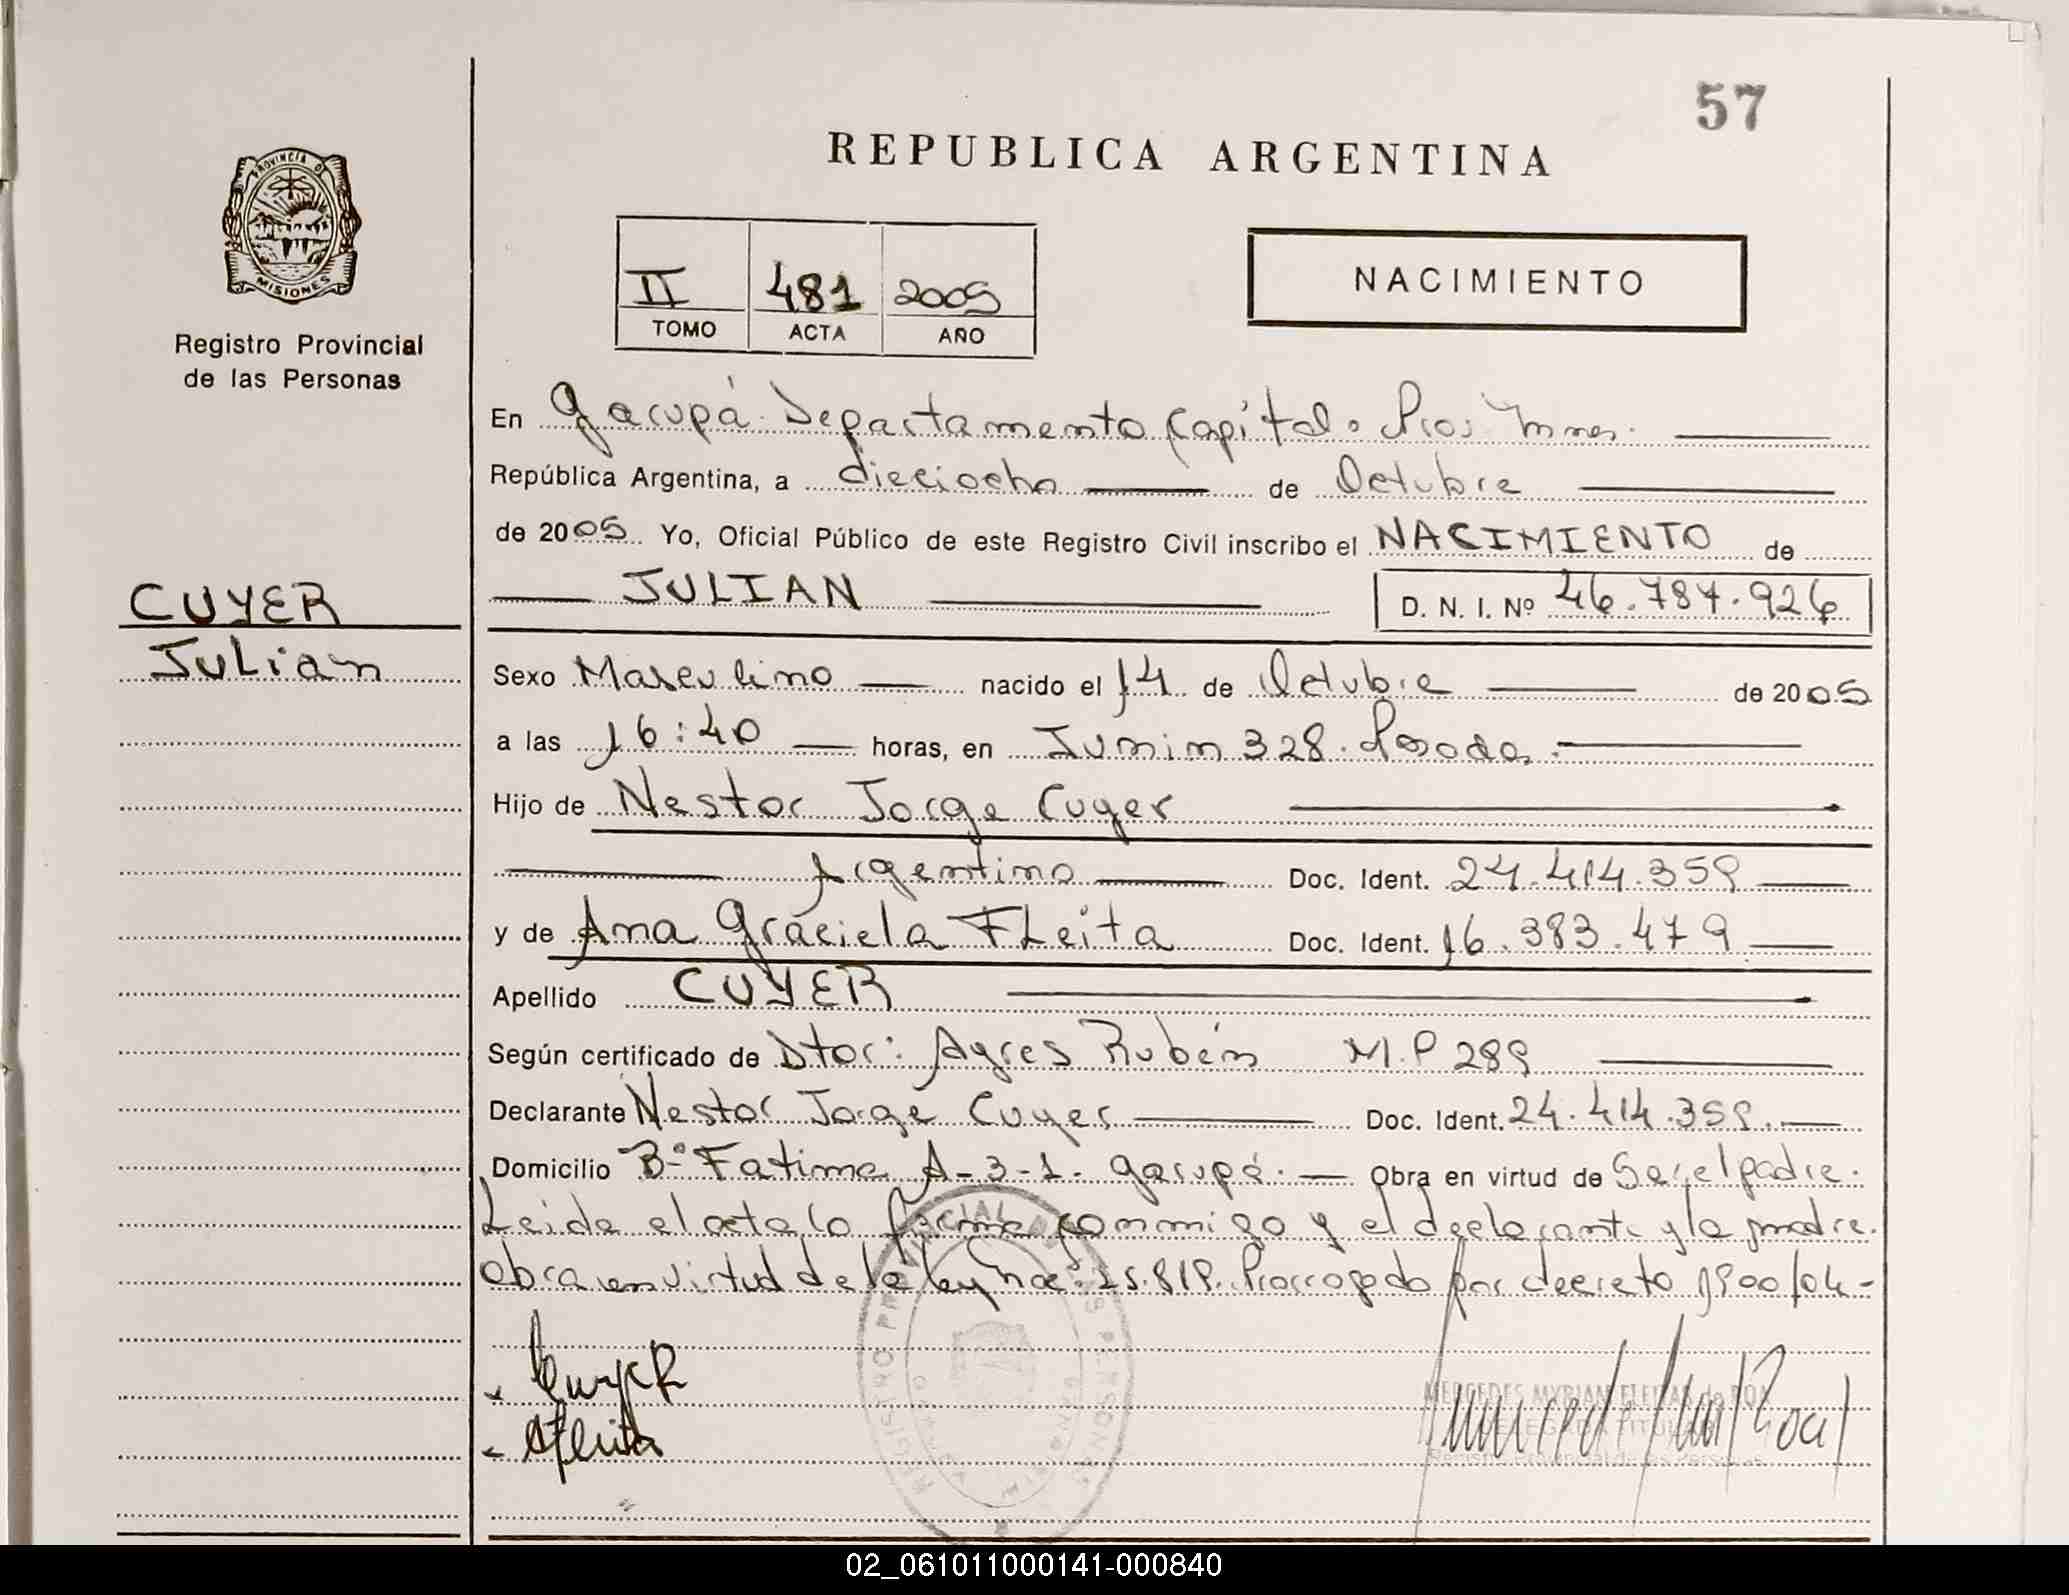 57
REPUBLICA ARGENTINA
PROVINCIA DE
MISIONES
Registro Provincial
de las Personas
II 481 2005
TOMO ACTA AÑO
NACIMIENTO
En Garupá. Departamento Capital. Pro; Mnes.
República Argentina, a dieciocho de Octubre
de 2005 Yo, Oficial Público de este Registro Civil inscribo el NACIMIENTO de
JULIAN D. N. I. Nº 46.787.926
CUYER
Julian
Sexo Masculino nacido el 14 de Octubre de 2005
a las 16:40 horas, en Junin 328. Posadas.
Hijo de Nestor Jorge Cuyer
Argentino Doc. Ident. 24.414.359
y de Ana Graciela Fleita Doc. Ident. 16.383.479
Apellido CUYER
Según certificado de Dtor: Ayres Rubén M.P 289
Declarante Nestor Jorge Cuyer Doc. Ident. 24.414.359.
Domicilio Bº Fatima A-3-1. Garupá. Obra en virtud de Ser el padre.
Leida el acta la firma conmigo y el declarante y la madre.
obra en virtud de la ley nº 25.819. Prorrogado por decreto 1900/04-
CuyeR
AFleita
REGISTRO PROVINCIAL DE LAS PERSONAS
MERCEDES MYRIAN
DELEGADA TITULAR
Registro Provincial de las Personas
02_061011000141-000840